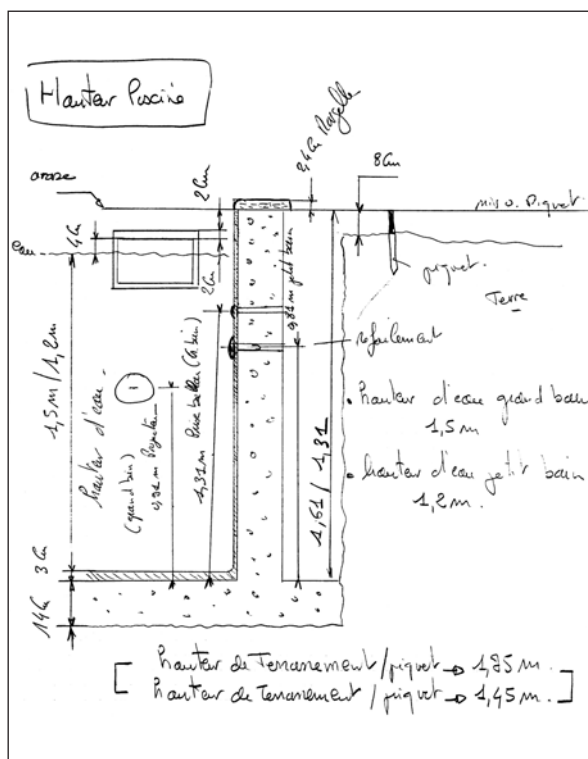 Hauteur Piscine
2,4 Cm Margelle
8 Cm
arase
2 Cm
niv. Piquet
eau
4 Cm
2 Cm
piquet.
Terre
refoulement
1,5 m / 1,2 m
hauteur d'eau.
(grand bain)
Projecteur
1,31 m Prise balai
petit bain
1,61 / 1,31
• hauteur d'eau grand bain
1,5 m
• hauteur d'eau petit bain
1,2 m.
3 Cm
14 Cm
hauteur de Terrassement / piquet → 1,85 m.
hauteur de Terrassement / piquet → 1,45 m.